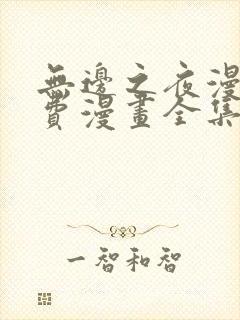 無邊之夜漫
費漫畫全集
一智和智